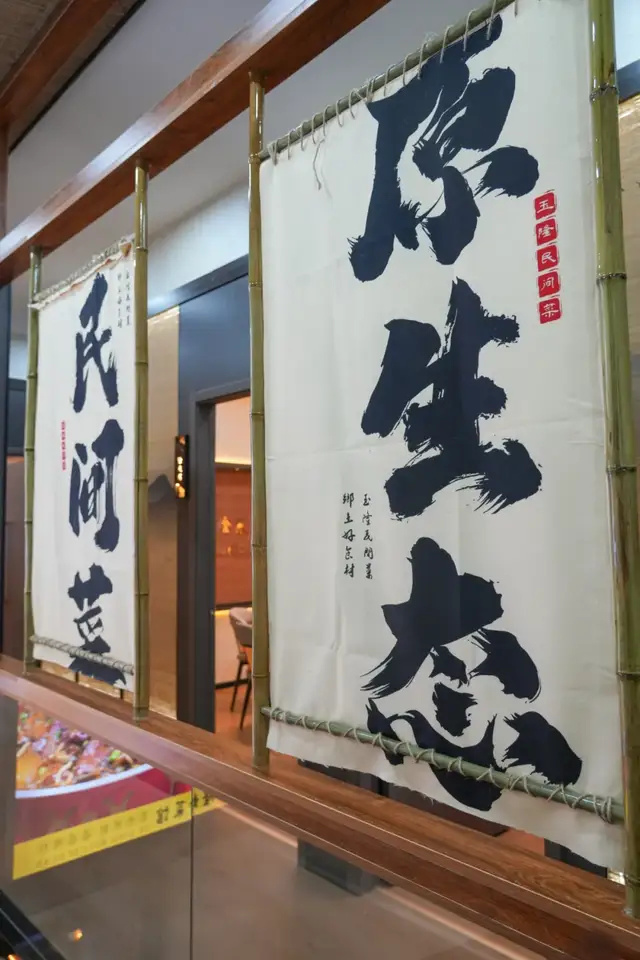 原生态
玉隆民间菜
玉隆民间菜
乡土好食材
民间菜